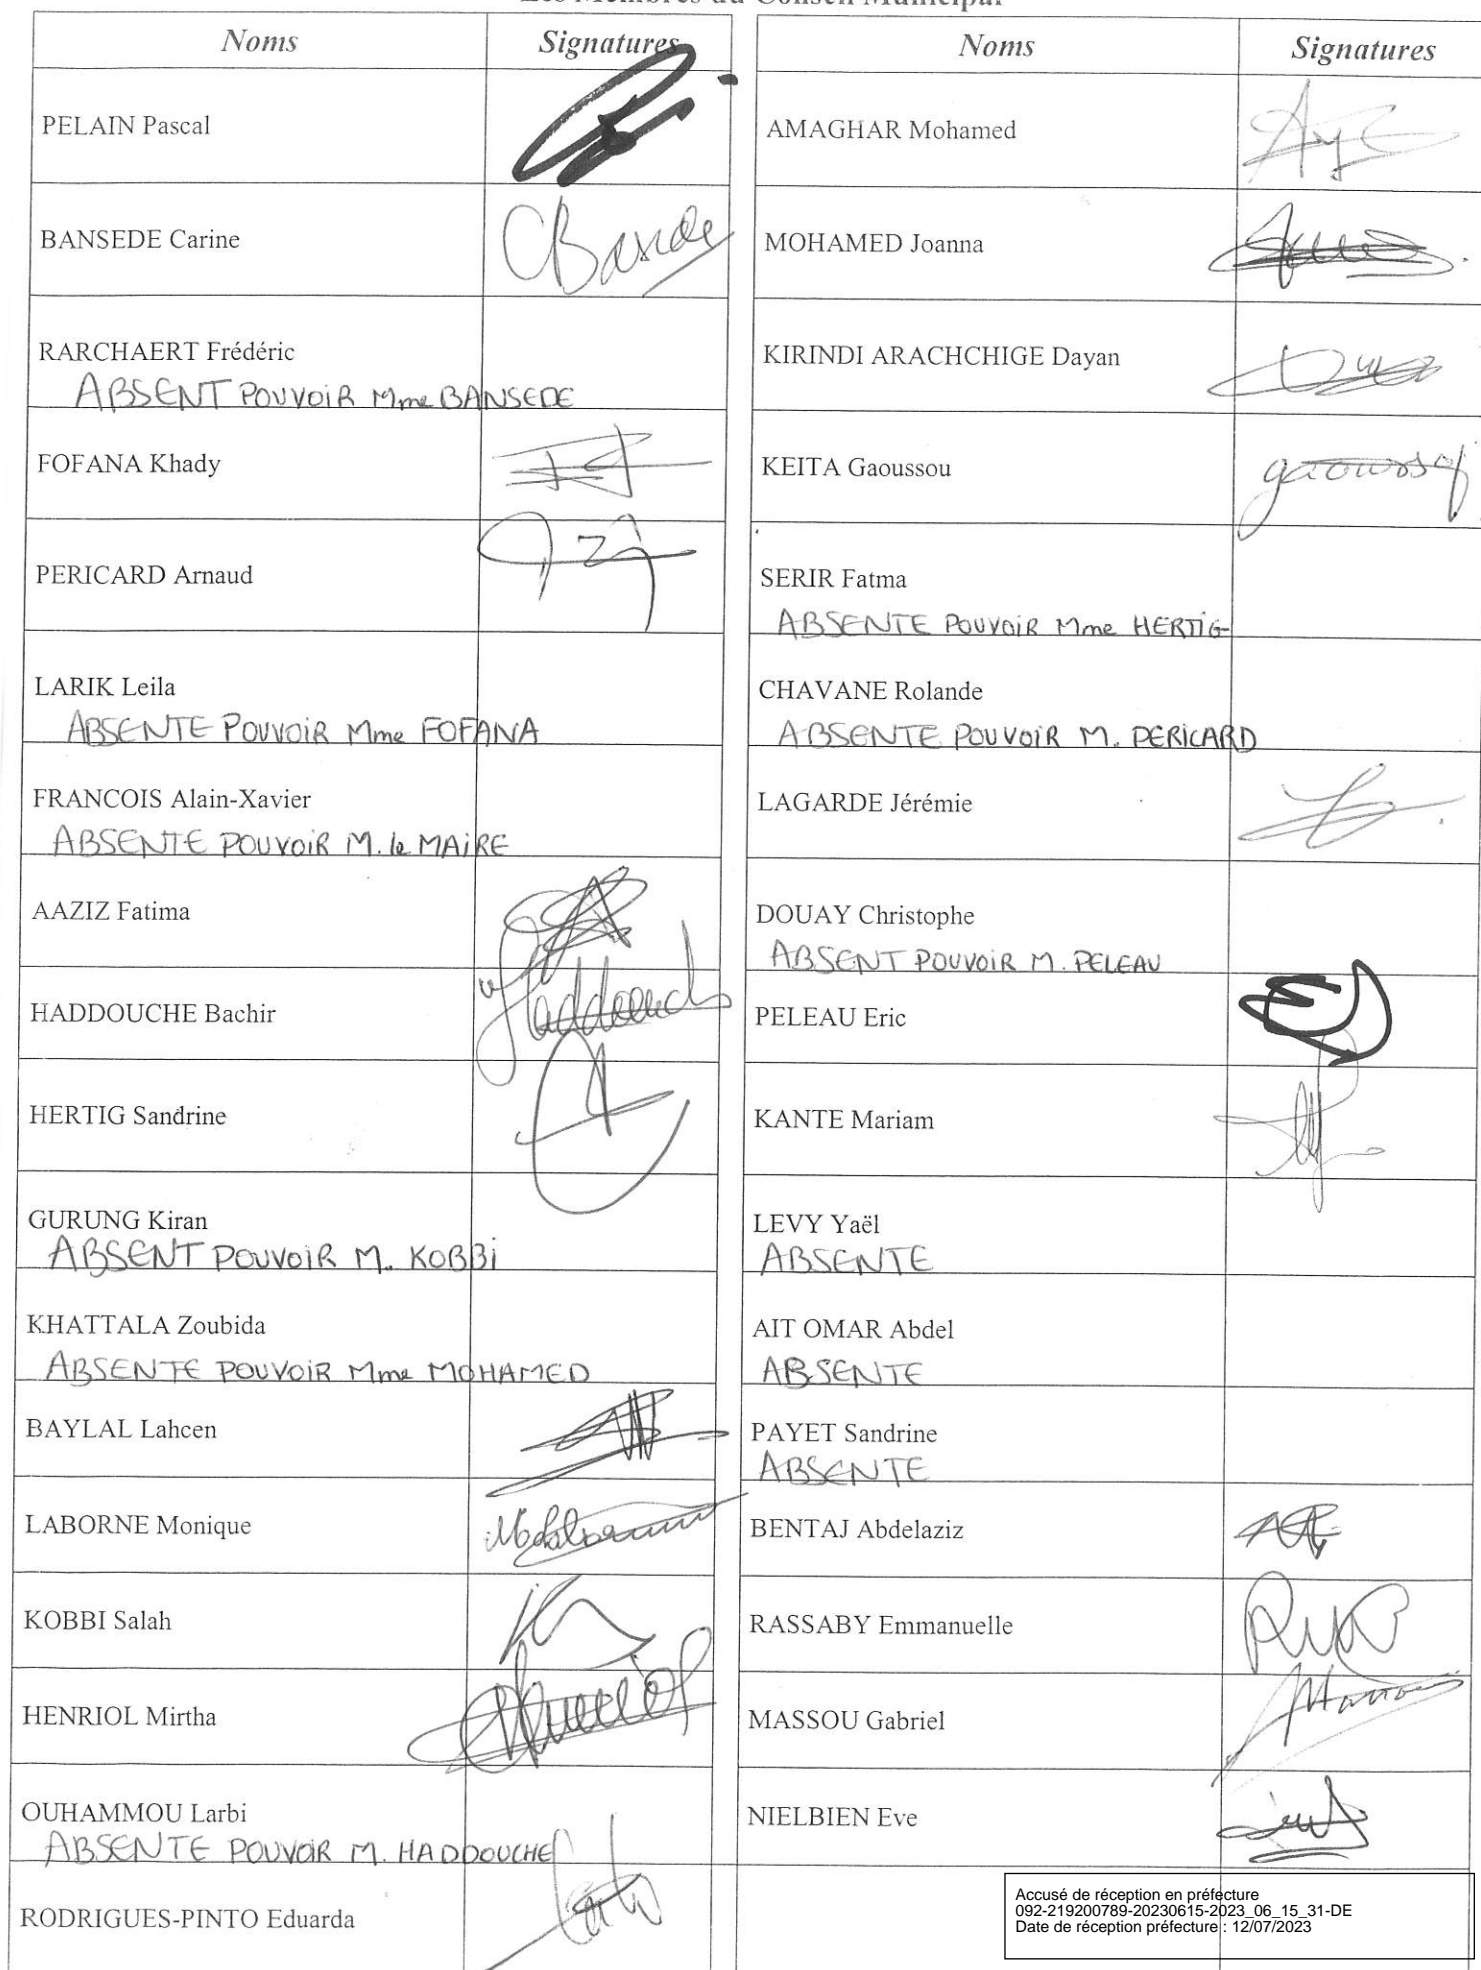 Les Membres du Conseil Municipal
Noms Signatures
PELAIN Pascal
BANSEDE Carine
RARCHAERT Frédéric
ABSENT POUVOIR Mme BANSEDE
FOFANA Khady
PERICARD Arnaud
LARIK Leila
ABSENTE POUVOIR Mme FOFANA
FRANCOIS Alain-Xavier
ABSENTE POUVOIR M. le MAIRE
AAZIZ Fatima
HADDOUCHE Bachir
HERTIG Sandrine
GURUNG Kiran
ABSENT POUVOIR M. KOBBI
KHATTALA Zoubida
ABSENTE POUVOIR Mme MOHAMED
BAYLAL Lahcen
LABORNE Monique
KOBBI Salah
HENRIOL Mirtha
OUHAMMOU Larbi
ABSENTE POUVOIR M. HADDOUCHE
RODRIGUES-PINTO Eduarda
Noms Signatures
AMAGHAR Mohamed
MOHAMED Joanna
KIRINDI ARACHCHIGE Dayan
KEITA Gaoussou
SERIR Fatma
ABSENTE POUVOIR Mme HERTIG
CHAVANE Rolande
ABSENTE POUVOIR M. PERICARD
LAGARDE Jérémie
DOUAY Christophe
ABSENT POUVOIR M. PELEAU
PELEAU Eric
KANTE Mariam
LEVY Yaël
ABSENTE
AIT OMAR Abdel
ABSENTE
PAYET Sandrine
ABSENTE
BENTAJ Abdelaziz
RASSABY Emmanuelle
MASSOU Gabriel
NIELBIEN Eve
Accusé de réception en préfecture
092-219200789-20230615-2023_06_15_31-DE
Date de réception préfecture : 12/07/2023